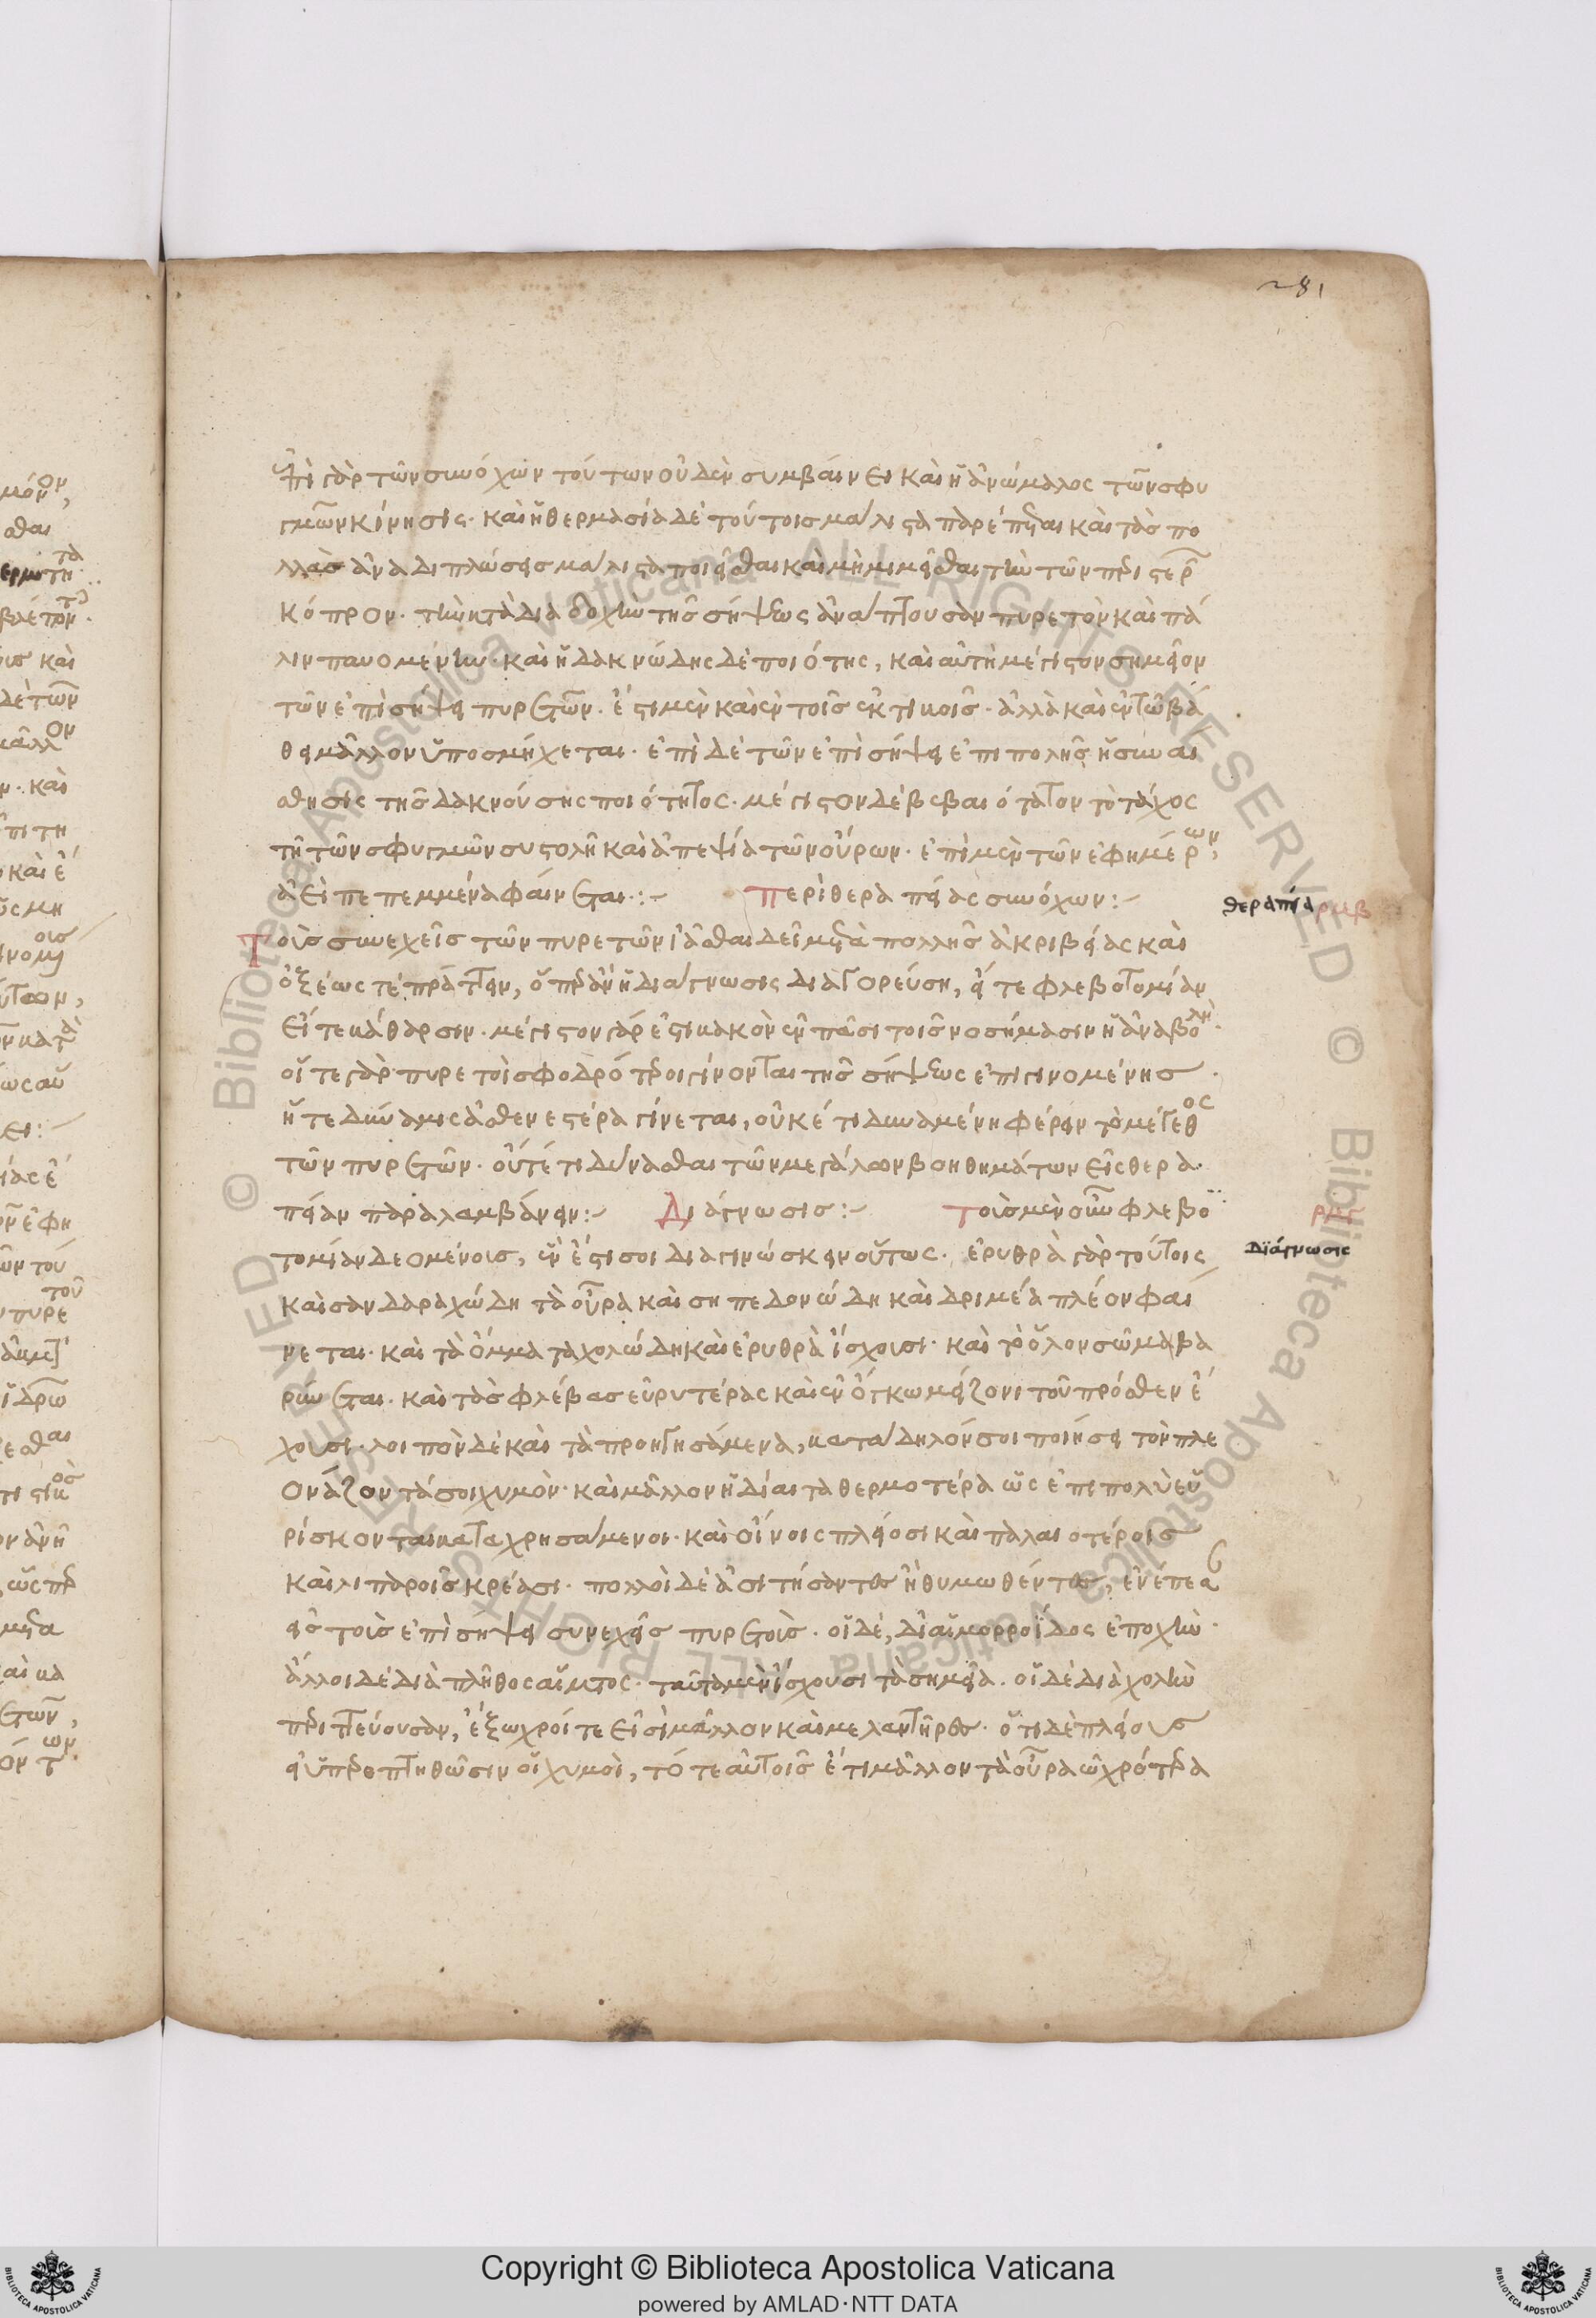 281
ἐπὶ γὰρ τῶν συνόχων τούτων οὐδὲν συμβαίνει καὶ ἡ ἀνώμαλος τῶν σφυ
γμῶν κίνησις· καὶ ἡ θερμασία δὲ τούτοις μάλιστα παρέπεται καὶ τὰς πο
λλὰς ἀναδιπλώσεις μάλιστα ποιεῖσθαι καὶ μὴ μιμεῖσθαι τὴν τῶν περιστερῶν
κόπρον· τὴν κατὰ διαδοχὴν τῆς σήψεως ἀνάπτουσαν πυρετὸν καὶ πά
λιν παυομένην· καὶ ἡ δακνώδης δὲ ποιότης, καὶ αὐτὴ μέγιστον σημεῖον
τῶν ἐπὶ σήψει πυρετῶν· ἔστι μὲν καὶ ἐν τοῖς ἑκτικοῖς· ἀλλὰ καὶ ἐν τῷ βά
θει μᾶλλον ὑποσμήχεται· ἐπὶ δὲ τῶν ἐπὶ σήψει ἐπιπολῆς ἡ συναί
σθησις τῆς δακνούσης ποιότητος· μέγιστον δὲ βεβαιότατον τὸ τάχος
τῇ τῶν σφυγμῶν συστολῇ καὶ ἀπεψία τῶν οὔρων· ἐπὶ μὲν τῶν ἐφημέρων,
ἀεὶ πεπεμμένα φαίνεται:- Περὶ θεραπείας συνόχων:-
θεραπεία ρμβ
Τοῖς συνεχεῖς τῶν πυρετῶν ἰᾶσθαι δεῖ μετὰ πολλῆς ἀκριβείας καὶ
ὀξέως τε πράττειν, ὅπερ ἂν ἡ διάγνωσις διαγορεύση, εἴτε φλεβοτομίαν
εἴτε κάθαρσιν· μέγιστον γάρ ἐστι κακὸν ἐν πᾶσι τοῖς νοσήμασιν ἡ ἀναβολή·
οἵ τε γὰρ πυρετοὶ σφοδρότεροι γίνονται τῆς σήψεως ἐπιγινομένης·
ἥ τε δύναμις ἀσθενεστέρα γίνεται, οὐκέτι δυναμένη φέρειν τὸ μέγεθος
τῶν πυρετῶν· οὔτε τι δύνασθαι τῶν μεγάλων βοηθημάτων εἰς θερα
πείαν παραλαμβάνειν:- Διάγνωσις:- Τοῖς μὲν οὖν φλεβο
διάγνωσις
τομίαν δεομένοις, ἔνεστί σοι διαγινώσκειν οὕτως· ἐρυθρὰ γὰρ τούτοις
καὶ σανδαραχώδη τὰ οὖρα καὶ σηπεδονώδη καὶ δριμέα πλέον φαί
νεται· καὶ τὰ ὄμματα χολώδη καὶ ἐρυθρὰ ἴσχουσι· καὶ τὸ ὅλον σῶμα βα
ρύνεται· καὶ τὰς φλέβας εὐρυτέρας καὶ ἐν ὄγκῳ μείζονι τοῦ πρόσθεν ἔ
χουσι· λοιπὸν δὲ καὶ τὰ προηγησάμενα, κατάδηλόν σοι ποιήσει τὸν πλε
ονάζοντά σοι χυμὸν· καὶ μᾶλλον ἡ δίαιτα θερμοτέρα ὡς ἐπιπολὺ εὑ
ρίσκονται καταχρησάμενοι· καὶ οἴνοις πλείοσι καὶ παλαιοτέροις
καὶ λιπαροῖς κρέασι· πολλοὶ δὲ ἀσιτήσαντες ἢ θυμωθέντες, ἐνέπεσον
εἰς τοῖς ἐπὶ σήψει συνεχεῖς πυρετοῖς· οἱ δὲ, δι' αἱμορροΐδος ἐποχὴν·
ἄλλοι δὲ διὰ πλῆθος αἵματος· ταῦτα μὲν ἴσχουσι τὰ σημεῖα· οἱ δὲ διὰ χολὴν
περιττεύουσαν, ἔξωχροί τε εἰσὶ μᾶλλον καὶ μελαντῆρες· ὅτι δὲ πλείους
εἰ ὑπεροπτηθῶσιν οἱ χυμοὶ, τότε αὐτοῖς ἔτι μᾶλλον τὰ οὖρα ὠχρότερα
Copyright © Biblioteca Apostolica Vaticana
powered by AMLAD·NTT DATA